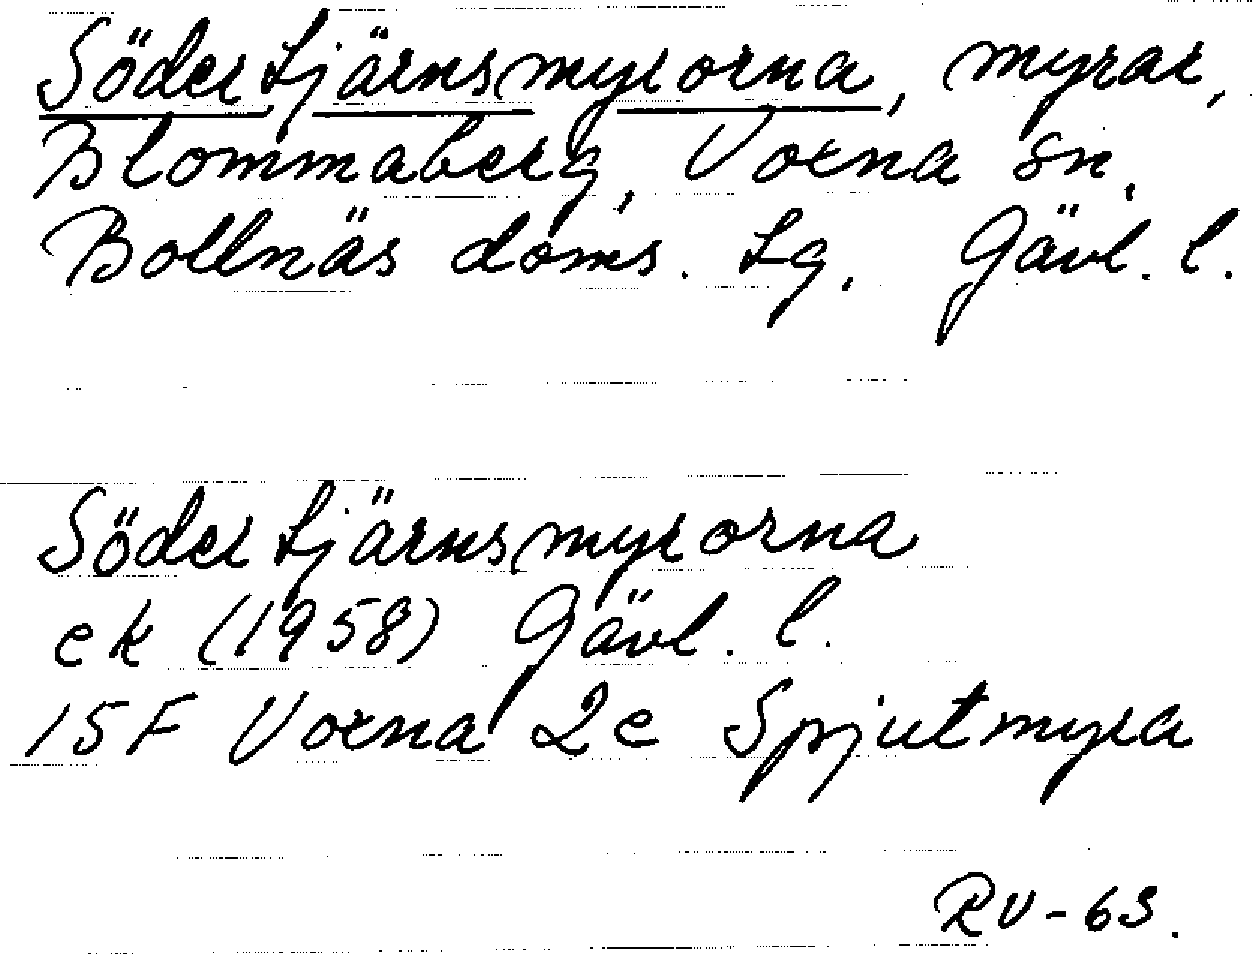 Södertjärnsmyrorna, myrar,
Blommaberg, Voxna sn,
Bollnäs doms. Lg, Gävl. l.
Södertjärnsmyrorna
ek (1958) Gävl. l.
15F Voxna 2e Spjutmyra
RV-63.